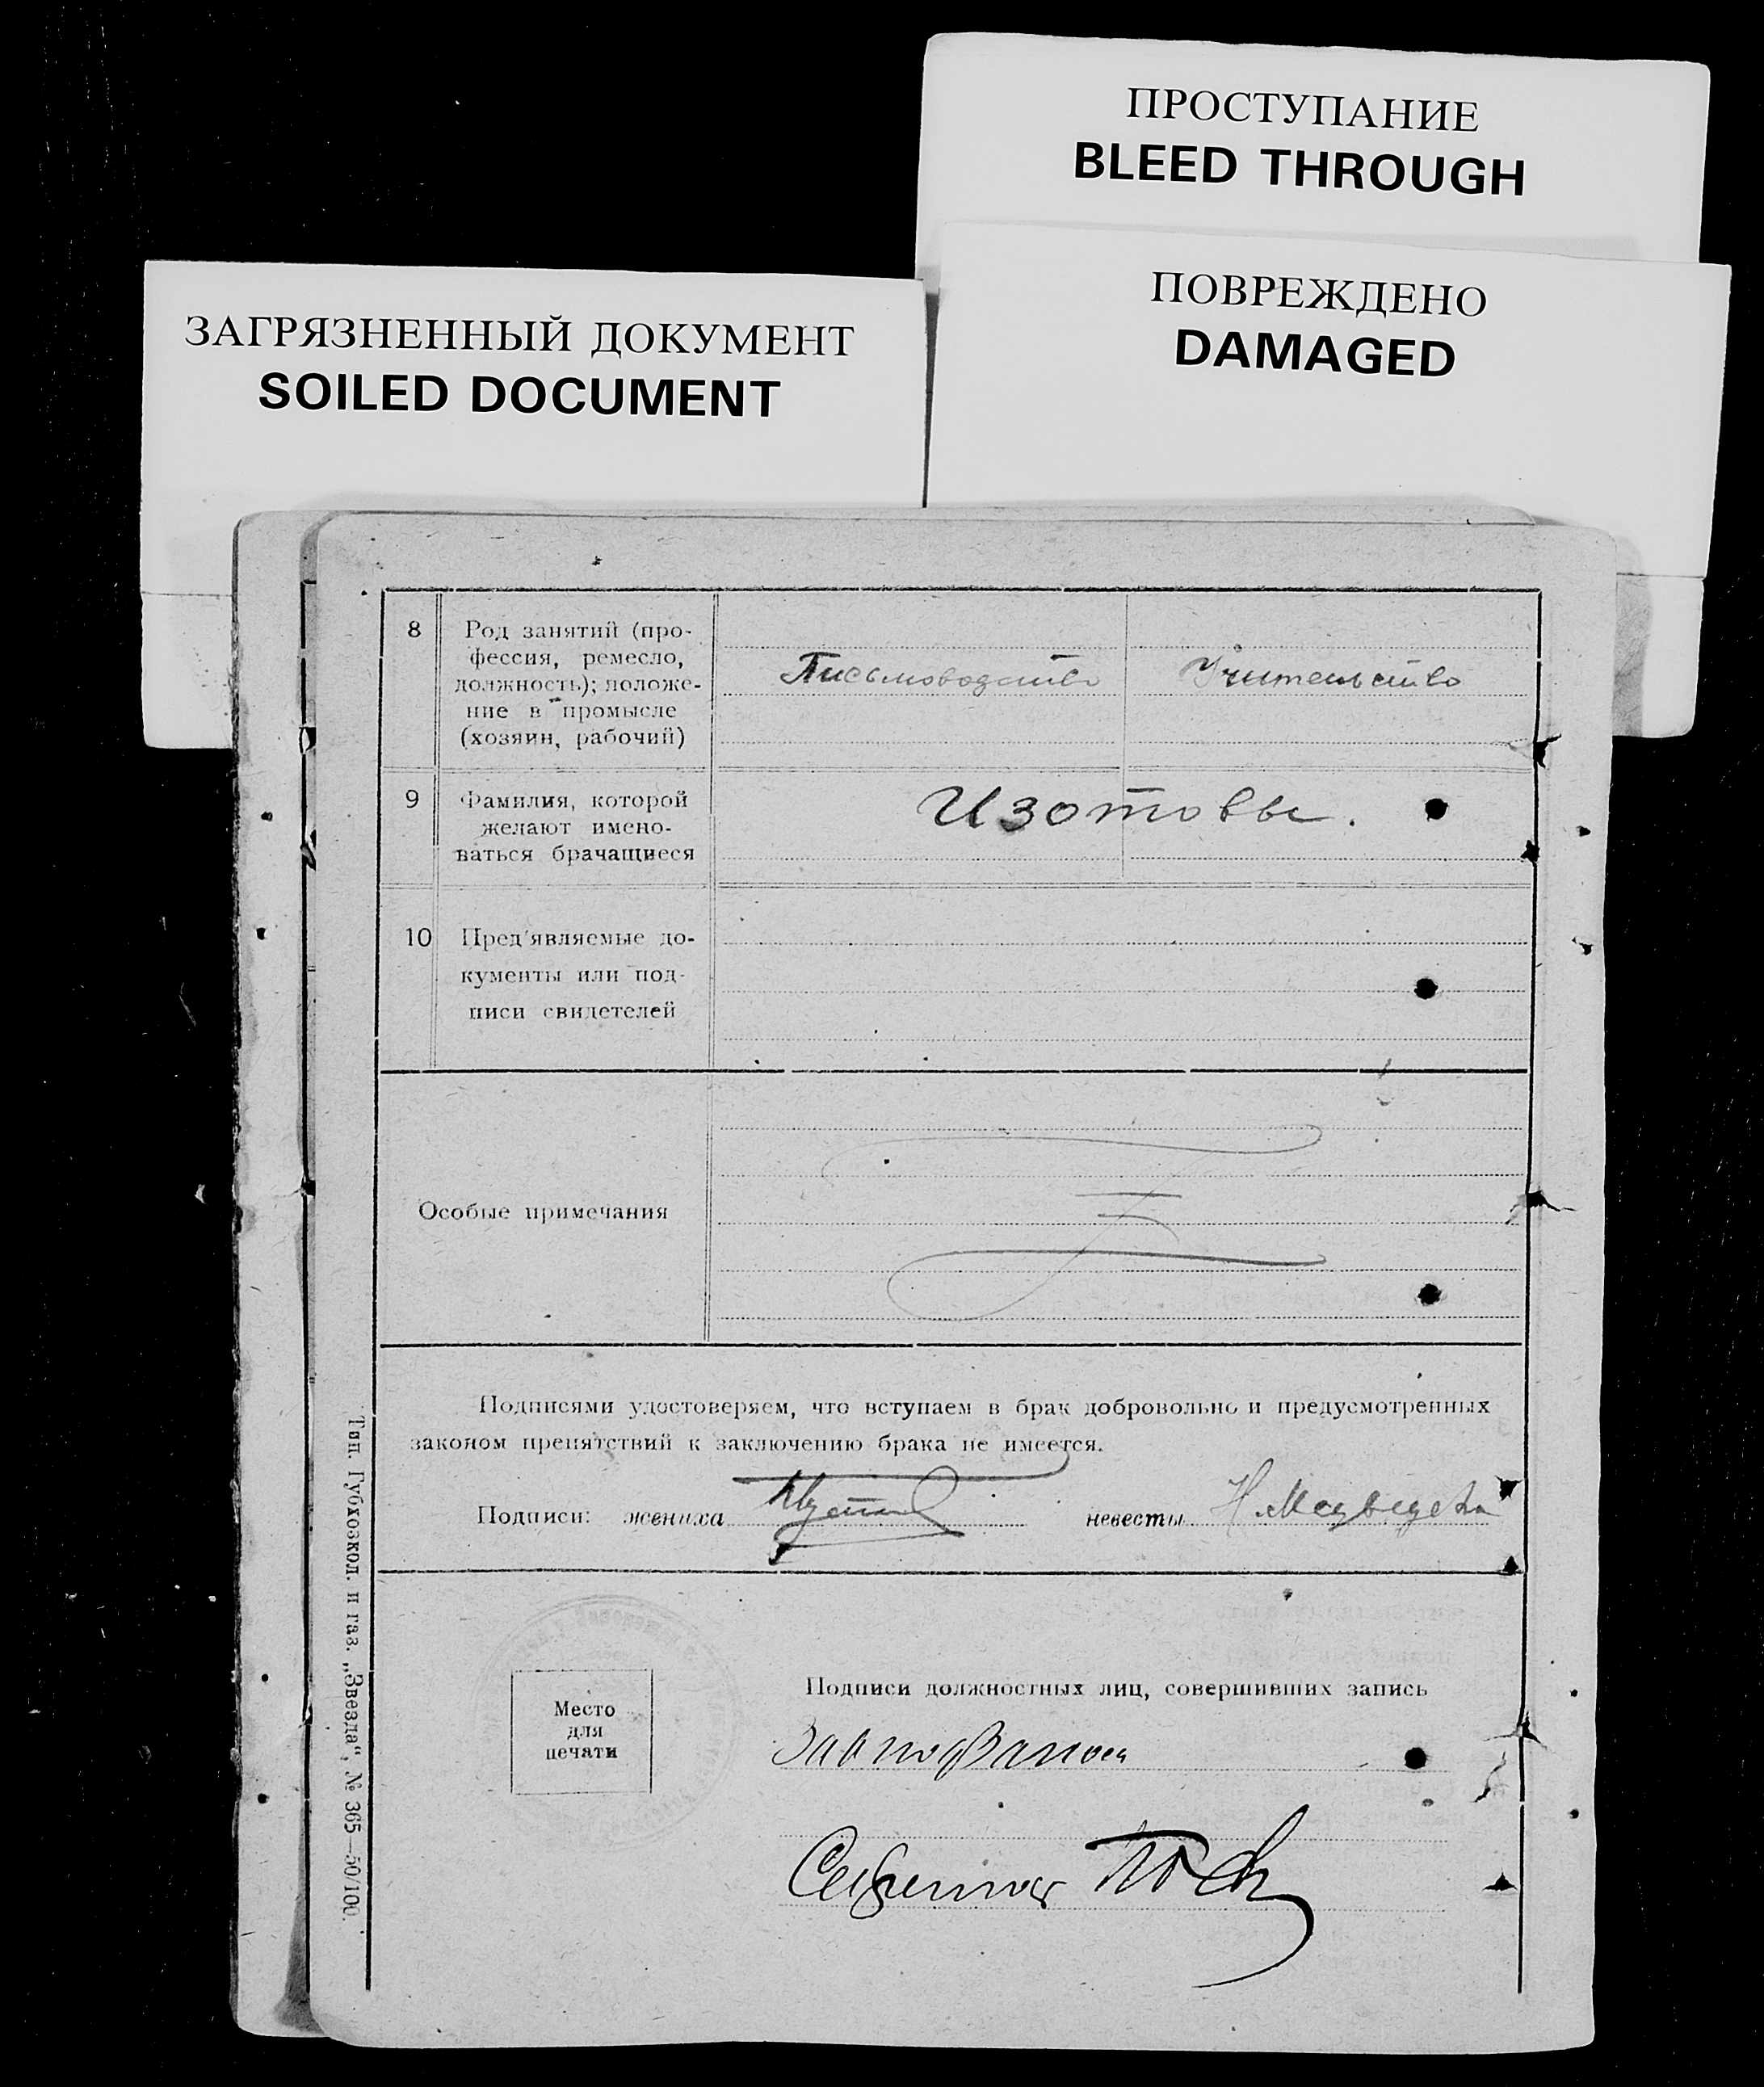 ПРОСТУПАНИЕ
BLEED THROUGH
ПОВРЕЖДЕНО
DAMAGED
ЗАГРЯЗНЕННЫЙ ДОКУМЕНТ
SOILED DOCUMENT
8
Род занятий (про-
фессия, ремесло,
должность); положе-
ние в промысле
(хозяин, рабочий)
Письмоводство
Учительство
9
Фамилия, которой
желают имено-
ваться брачащиеся
Изотовы.
10
Пред'являемые до-
кументы или под-
писи свидетелей
Особые примечания
Подписями удостоверяем, что вступаем в брак добровольно и предусмотренных
законом препятствий к заключению брака не имеется.
Подписи: жениха
невесты Н. Медведева
Место
для
печати
Подписи должностных лиц, совершивших запись
Тип. Губхозкол. и газ. „Звезда“, № 365—50/100.